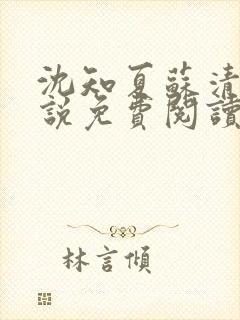 沈知夏蘇清
說免費閱讀
林言傾